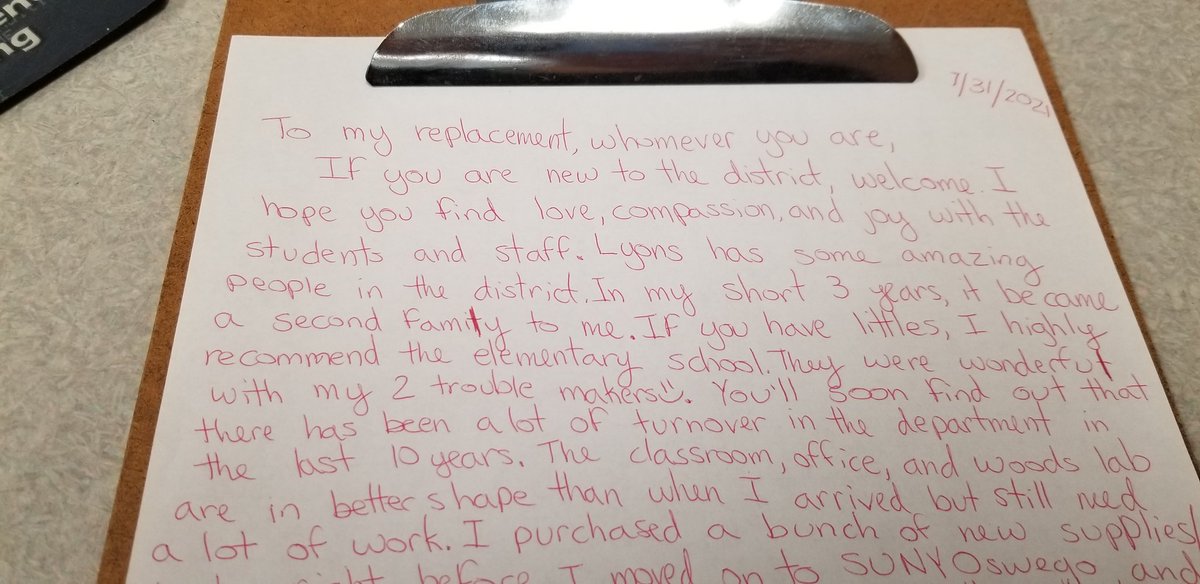 ng
7/31/2021
To my replacement, whomever you are,
If you are new to the district, welcome. I
hope you find love, compassion, and joy with the
students and staff. Lyons has some amazing
people in the district. In my short 3 years, it became
a second family to me. If you have littles, I highly
recommend the elementary school. They were wonderful
with my 2 trouble makers☺. You'll soon find out that
there has been a lot of turnover in the department in
the last 10 years. The classroom, office, and woods lab
are in better shape than when I arrived, but still need
a lot of work. I purchased a bunch of new supplies/
right before I moved on to SUNY Oswego and